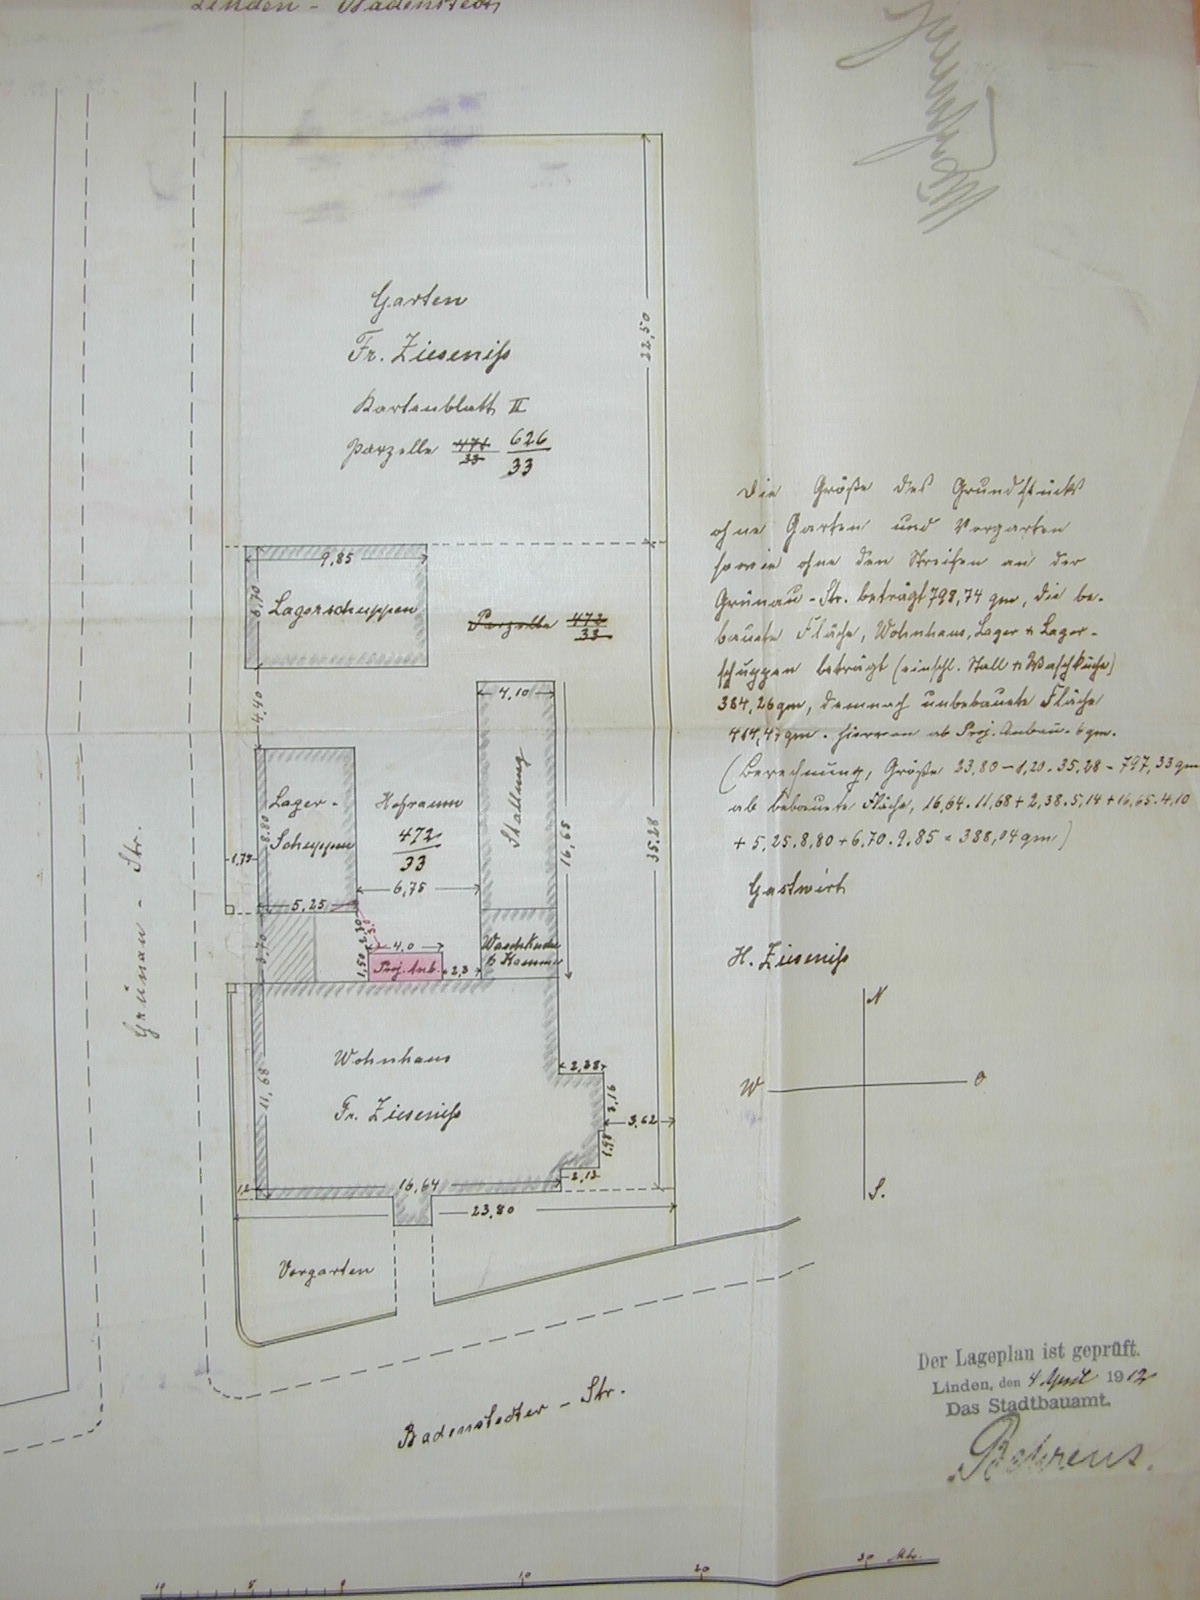 Linden - Badenstedt
Garten
Fr. Zieseniß
Kartenblatt II
Parzelle 471/33 626/33
22,50
9,85
6,70
Lagerschuppen
Parzelle 472/33
4,40
4,10
Stallung
16,65
Lager-
Schuppen
8,80
Hofraum
472/33
35,28
1,75
6,75
5,25
3,70
4,0
1,50
Proj. Anb.
2,3
Waschküche
Kammer
Grünau - Str.
Wohnhaus
Fr. Zieseniß
11,68
2,38
3,16
3,62
1,98
2,12
1,2
16,64
23,80
Vorgarten
Badenstedter - Str.
Die Größe des Grundstücks
ohne Garten und Vorgarten
sowie ohne den Streifen an der
Grünau - Str. beträgt 798,74 qm, die be-
baute Fläche, Wohnhaus, Lager + Lager-
schuppen beträgt (einschl. Stall + Waschküche)
384,26 qm, demnach unbebaute Fläche
414,47 qm. Hiervon ab Proj. Anbau = 6 qm.
(Berechnung, Größe 23,80 - 1,20 . 35,28 = 797,33 qm
ab bebaute Fläche, 16,64 . 11,68 + 2,38 . 5,14 + 16,65 . 4,10
+ 5,25 . 8,80 + 6,70 . 9,85 = 388,04 qm)
Gastwirt
H. Zieseniß
N
W
O
S.
Der Lageplan ist geprüft.
Linden, den 4 April 1912
Das Stadtbauamt.
Behrens.
10 5 0 10 20 30 Mtr.